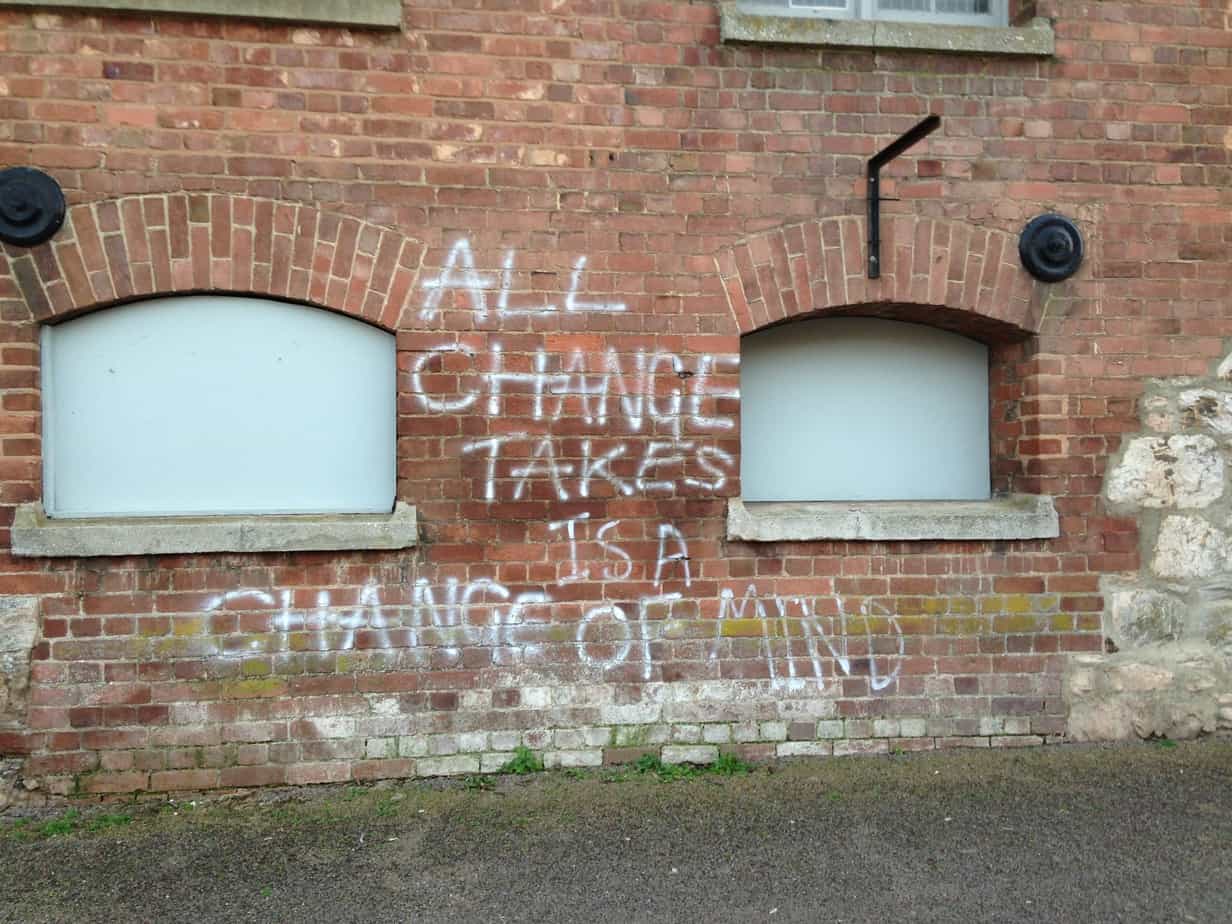 ALL
CHANGE
TAKES
IS A
CHANGE OF MIND